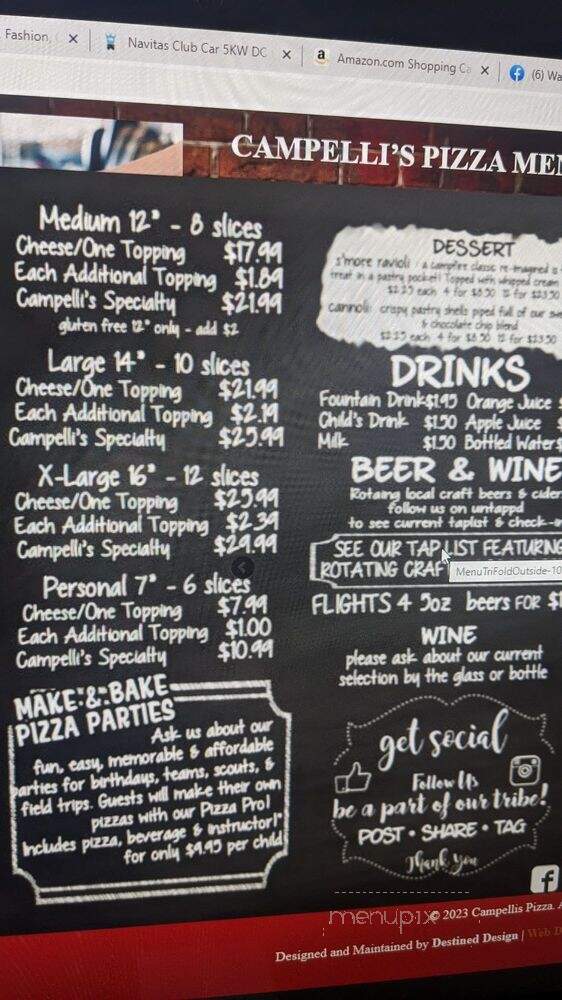 Fashion,
Navitas Club Car 5KW DC
Amazon.com Shopping Ca
(6) Wa
CAMPELLI'S PIZZA MEN
Medium 12" - 8 slices
Cheese/One Topping $17.99
Each Additional Topping $1.89
Campelli's Specialty $21.99
gluten free 12" only - add $2
Large 14" - 10 slices
Cheese/One Topping $21.99
Each Additional Topping $2.19
Campelli's Specialty $25.99
X-Large 16" - 12 slices
Cheese/One Topping $25.99
Each Additional Topping $2.39
Campelli's Specialty $29.99
Personal 7" - 6 slices
Cheese/One Topping $7.99
Each Additional Topping $1.00
Campelli's Specialty $10.99
MAKE & BAKE
PIZZA PARTIES
Ask us about our
fun, easy, memorable & affordable
parties for birthdays, teams, scouts, &
field trips. Guests will make their own
pizzas with our Pizza Pro!
Includes pizza, beverage & instructor!*
for only $9.95 per child
DESSERT
s'more ravioli : a campfire classic re-imagined
treat in a pastry pocket! Topped with whipped cream
$2.25 each 4 for $8.50 12 for $23.50
cannoli: crispy pastry shells piped full of our
& chocolate chip blend
$2.25 each 4 for $8.50 12 for $23.50
DRINKS
Fountain Drink $1.95 Orange Juice
Child's Drink $1.50 Apple Juice
Milk $1.50 Bottled Water $
BEER & WINE
Rotaing local craft beers & cider
follow us on untappd
to see current taplist & check-in
SEE OUR TAP LIST FEATURING
ROTATING CRAF
MenuTriFoldOutside-10
FLIGHTS 4 5oz beers FOR $1
WINE
please ask about our current
selection by the glass or bottle
get social
Follow Us
be a part of our tribe!
POST • SHARE • TAG
Thank you
menupix
© 2023 Campellis Pizza. A
Designed and Maintained by Destined Design | Web D